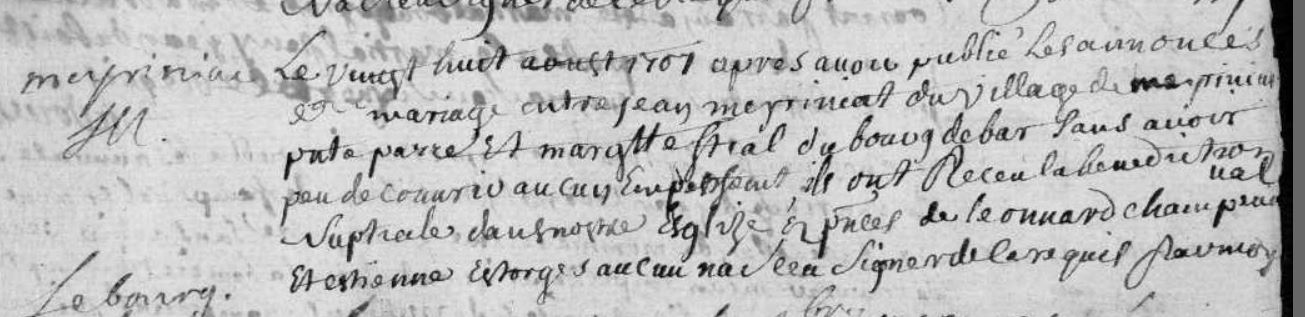 meyriniac Le vingt huit aoust 1701 apres avoir publié Les annonces
M. de mariage entre jean meyriniat du village de meyriniat
pnte parre Et margtte stral du bourg de bar Sans avoir
peu decouvrir aucun Empeschemt ils ont Receu la benediction
Nuptiale dans nostre Esglize Ez pnces de leonnard champeaunal
Et estienne Estorges aucun na sceu signer de ce requis par moy
Le bourg.